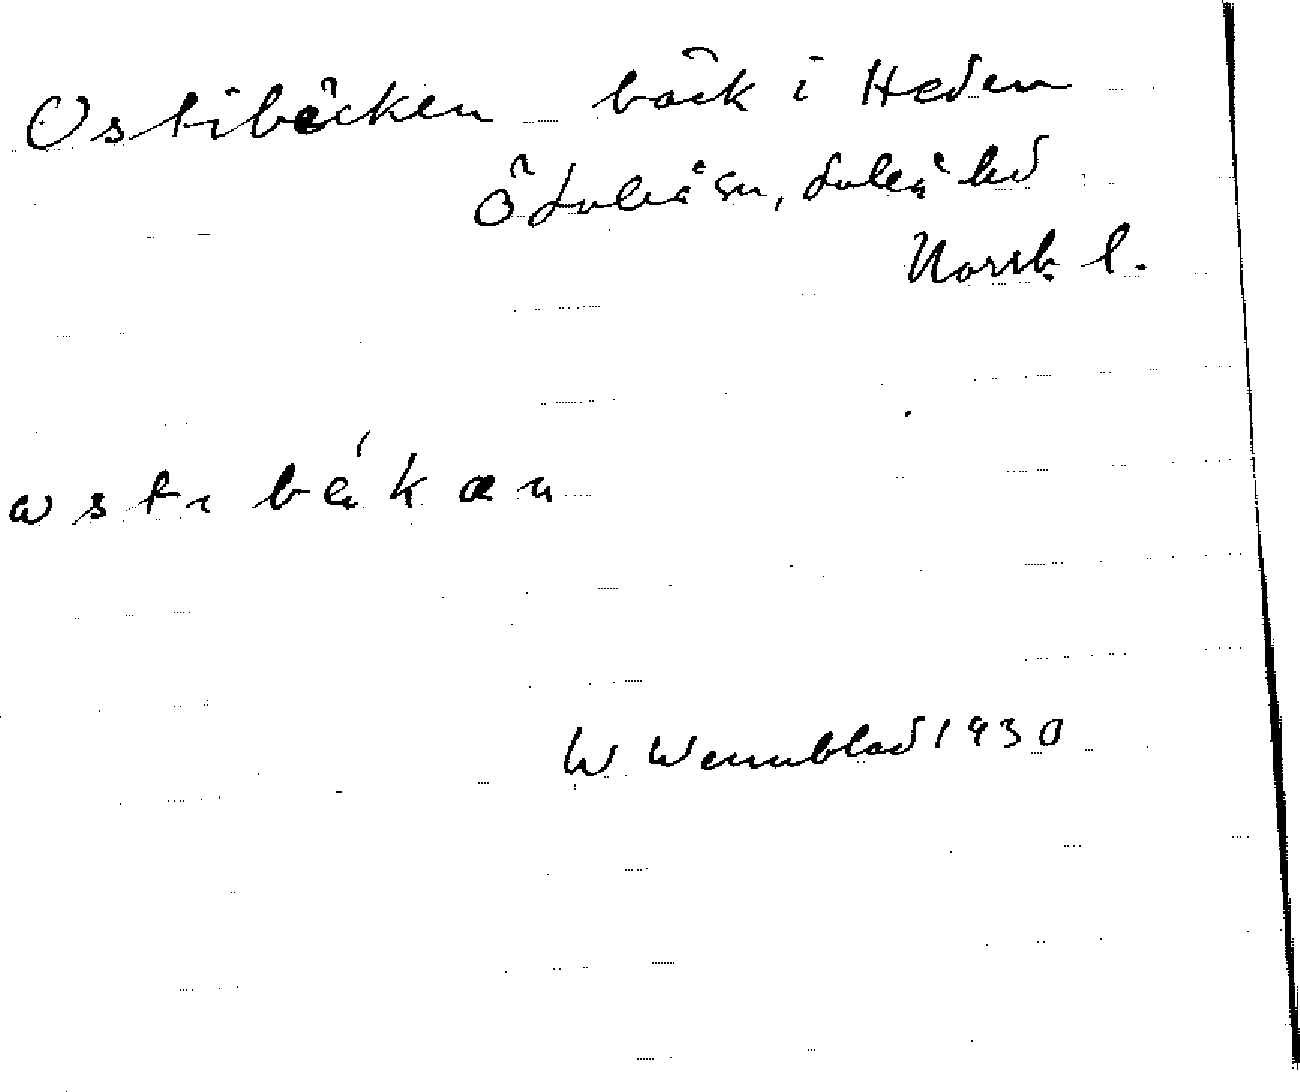 Ostibäcken bäck i Heden
Ö Luleå sn, Luleå hd
Norrb. l.
ωstıbäkæn
W Wennblad 1930